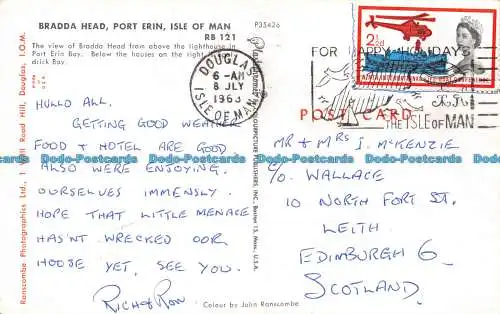 BRADDA HEAD, PORT ERIN, ISLE OF MAN
RB 121
P35426
The view of Bradda Head from above the lighthouse in
Port Erin Bay. Below the houses on the right
drick Bay.
DOUGLAS
6-AM
8 JLY
1963
ISLE OF MAN
FOR HAPPY HOLIDAYS
THE ISLE OF MAN
2½D
POST CARD
HULLO ALL.
GETTING GOOD WEATHER
FOOD & HOTEL ARE GOOD
ALSO WERE ENJOYING
OURSELVES IMMENSLY.
HOPE THAT LITTLE MENACE
HAS'NT WRECKED OOR
HOOSE YET, SEE YOU.
RICH & RON
MR & MRS J. McKENZIE
C/O WALLACE
10 NORTH FORT ST.
LEITH
EDINBURGH 6
SCOTLAND
Colour by John Ranscombe
Ranscombe Photographics Ltd., 1 Mill Road Hill, Douglas, I.O.M.
Plastichrome
PUBLISHERS, INC., Boston 15, Mass., U.S.A.
Dodo-Postcards Dodo-Postcards Dodo-Postcards Dodo-Postcards
Dodo-Postcards Dodo-Postcards Dodo-Postcards Dodo-Postcards